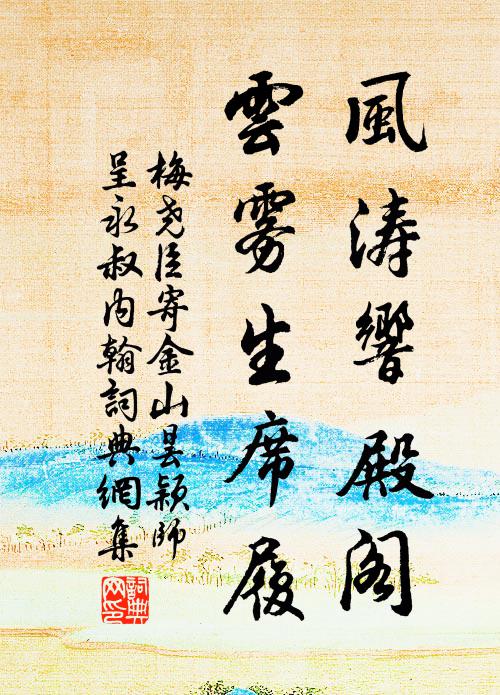 風濤響殿閣
雲雾生席履
梅尧臣寄金山昙颖師
呈永叔内翰詞典網集
詞典